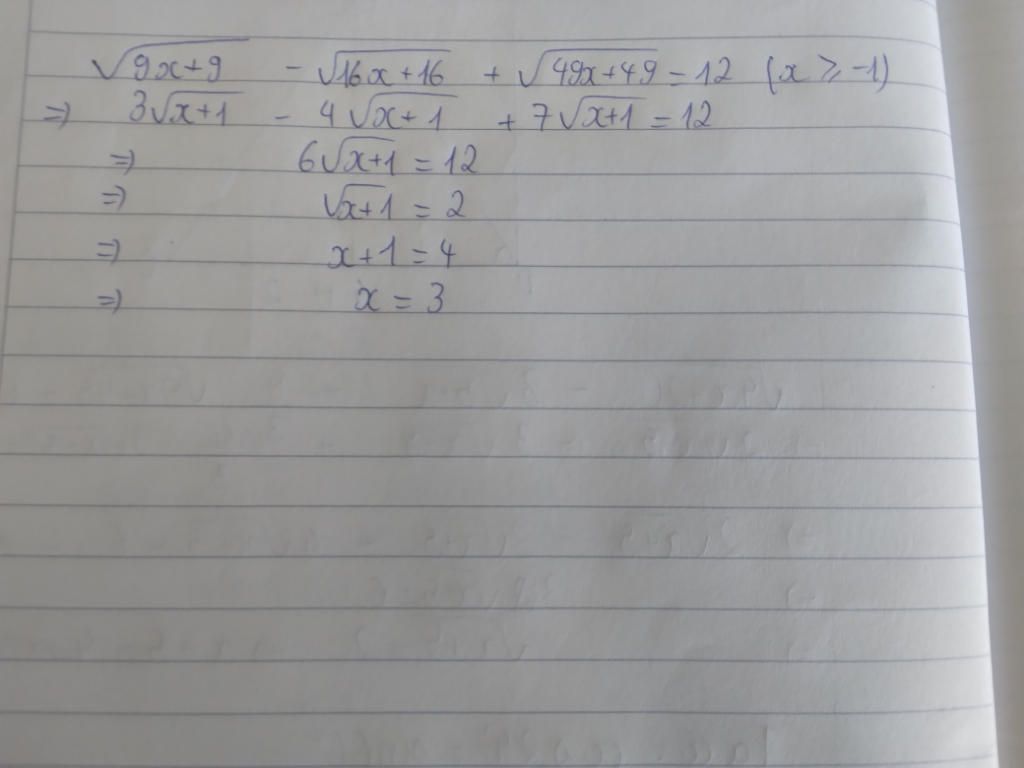 √(9x+9) - √(16x+16) + √(49x+49) = 12 (x ⩾ -1)
⇒ 3√(x+1) - 4√(x+1) + 7√(x+1) = 12
⇒ 6√(x+1) = 12
⇒ √(x+1) = 2
⇒ x+1 = 4
⇒ x = 3